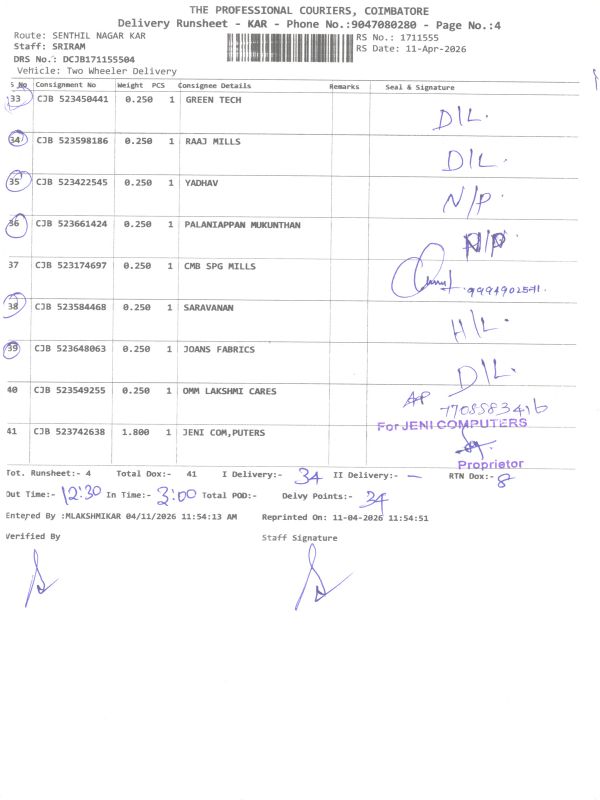 THE PROFESSIONAL COURIERS, COIMBATORE
Delivery Runsheet - KAR - Phone No.:9047080280 - Page No.:4
Route: SENTHIL NAGAR KAR RS No.: 1711555
Staff: SRIRAM RS Date: 11-Apr-2026
DRS No.: DCJB171155504
Vehicle: Two Wheeler Delivery
S No Consignment No Weight PCS Consignee Details Remarks Seal & Signature
33 CJB 523450441 0.250 1 GREEN TECH D/L.
34 CJB 523598186 0.250 1 RAAJ MILLS D/L.
35 CJB 523422545 0.250 1 YADHAV N/P.
36 CJB 523661424 0.250 1 PALANIAPPAN MUKUNTHAN N/P
37 CJB 523174697 0.250 1 CMB SPG MILLS
38 CJB 523584468 0.250 1 SARAVANAN H/L.
39 CJB 523648063 0.250 1 JOANS FABRICS D/L.
40 CJB 523549255 0.250 1 OMM LAKSHMI CARES 7708583416
41 CJB 523742638 1.800 1 JENI COM,PUTERS For JENI COMPUTERS
Proprietor
Tot. Runsheet:- 4 Total Dox:- 41 I Delivery:- 34 II Delivery:- — RTN Dox:- 8
Out Time:- 12:30 In Time:- 3:00 Total POD:- Delvy Points:- 34
Entered By :MLAKSHMIKAR 04/11/2026 11:54:13 AM Reprinted On: 11-04-2026 11:54:51
Verified By Staff Signature